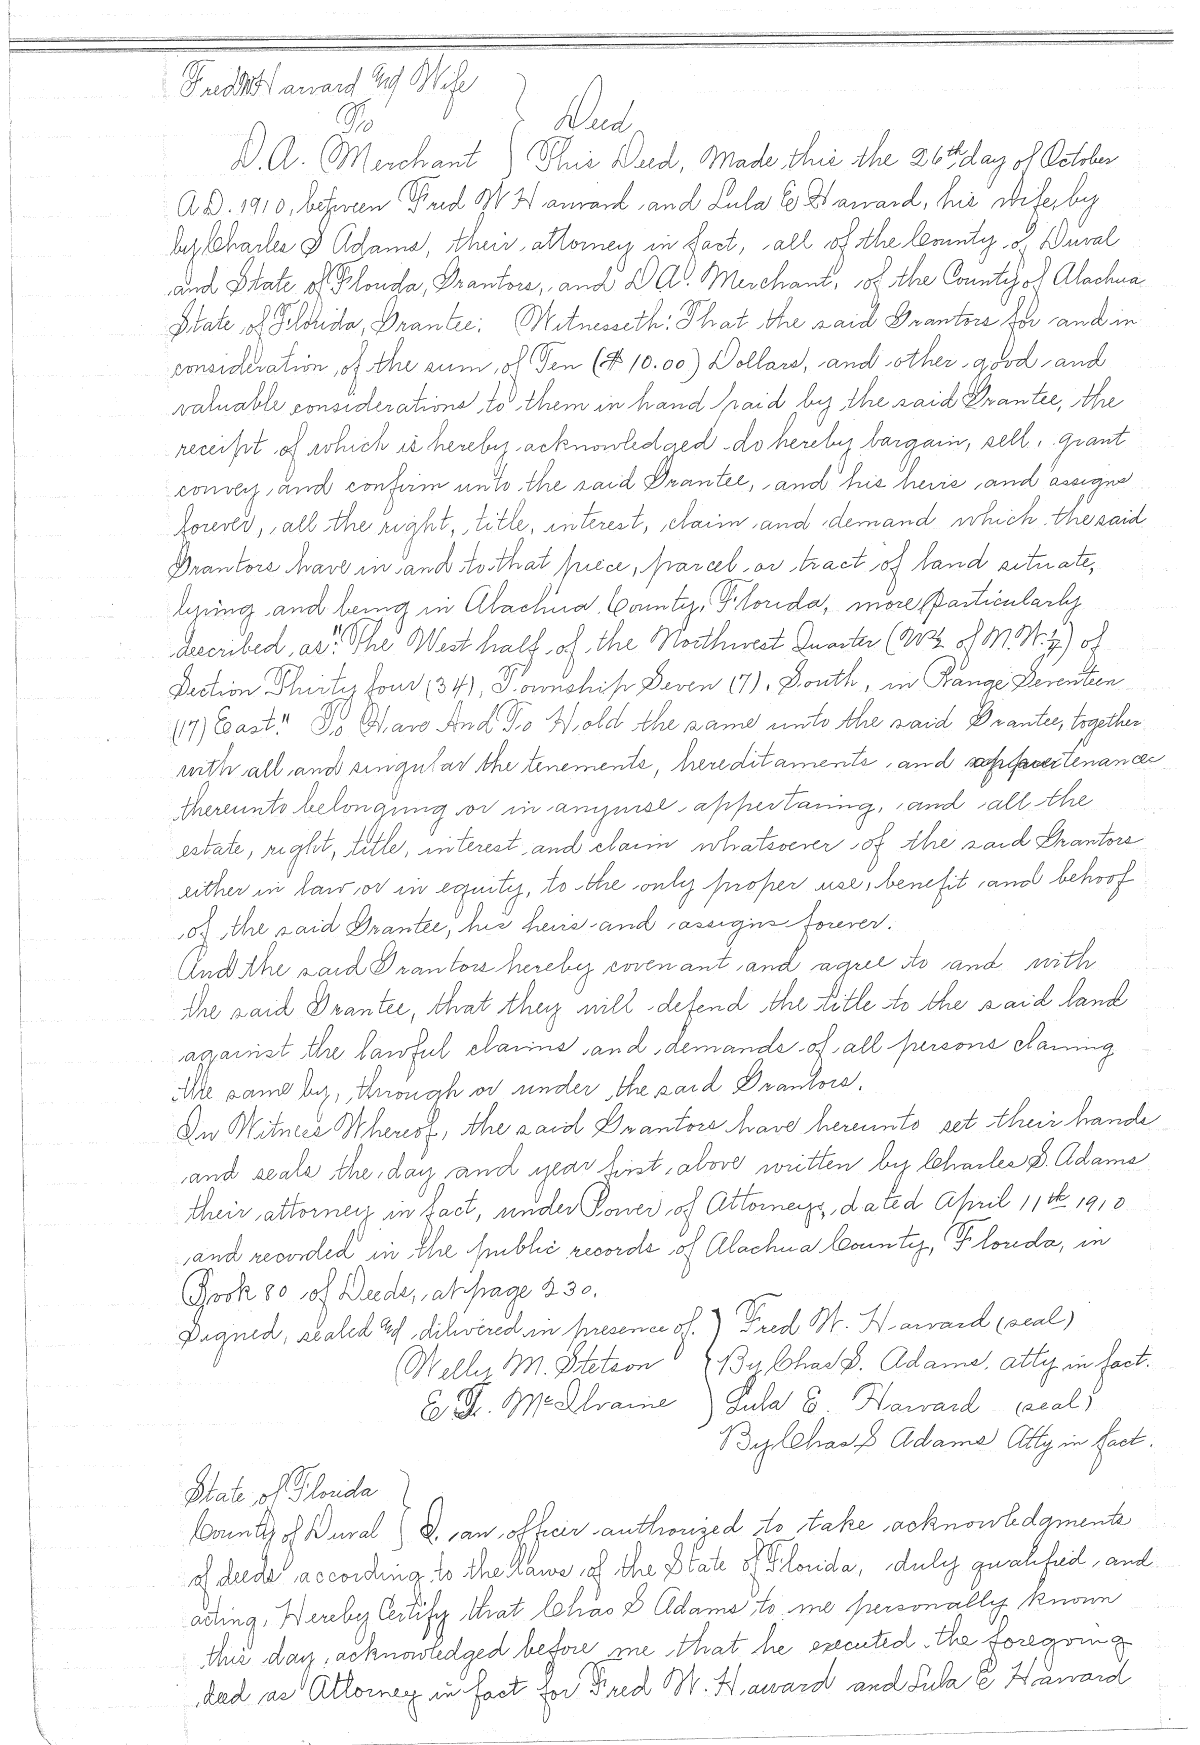 Fred W Haward and Wife
To } Deed
D. A. Merchant } This Deed, Made this the 26th day of October
A.D. 1910, between Fred W Haward and Lula E Haward, his wife, by
by Charles S Adams, their attorney in fact, all of the County of Duval
and State of Florida, Grantors, and D A. Merchant, of the County of Alachua
State of Florida, Grantee: Witnesseth: That the said Grantors for and in
consideration of the sum of Ten ($ 10.00) Dollars, and other good and
valuable considerations to them in hand paid by the said Grantee, the
receipt of which is hereby acknowledged do hereby bargain, sell, grant
convey and confirm unto the said Grantee, and his heirs and assigns
forever, all the right, title, interest, claim and demand which the said
Grantors have in and to that piece, parcel or tract of land situate,
lying and being in Alachua County, Florida, more particularly
described as: "The West half of the Northwest Quarter (W½ of N.W.¼) of
Section Thirty four (34), Township Seven (7), South, in Range Seventeen
(17) East." To Have And To Hold the same unto the said Grantee, together
with all and singular the tenements, hereditaments and appurtenances
thereunto belonging or in anywise appertaning, and all the
estate, right, title, interest and claim whatsoever of the said Grantors
either in law or in equity, to the only proper use, benefit and behoof
of the said Grantee, his heirs and assigns forever.
And the said Grantors hereby covenant and agree to and with
the said Grantee, that they will defend the title to the said land
against the lawful claims and demands of all persons claming
the same by, through or under the said Grantors.
In Witness Whereof, the said Grantors have hereunto set their hands
and seals the day and year first above written by Charles S. Adams
their attorney in fact, under Power of Attorneys, dated April 11th 1910
and recorded in the public records of Alachua County, Florida, in
Book 80 of Deeds, at page 230.
Signed, sealed and delivered in presence of. } Fred W. Haward (seal)
Welly M. Stetson } By Chas S. Adams. atty in fact.
E. T. McIlvaine } Lula E. Haward (seal)
By Chas S Adams Atty in fact.
State of Florida }
County of Duval } I, an officer authorized to take acknowledgments
of deeds according to the laws of the State of Florida, duly qualified and
acting, Hereby Certify that Chas S Adams to me personally known
this day acknowledged before me that he executed the foregoing
deed as Attorney in fact for Fred W. Haward and Lula E Haward